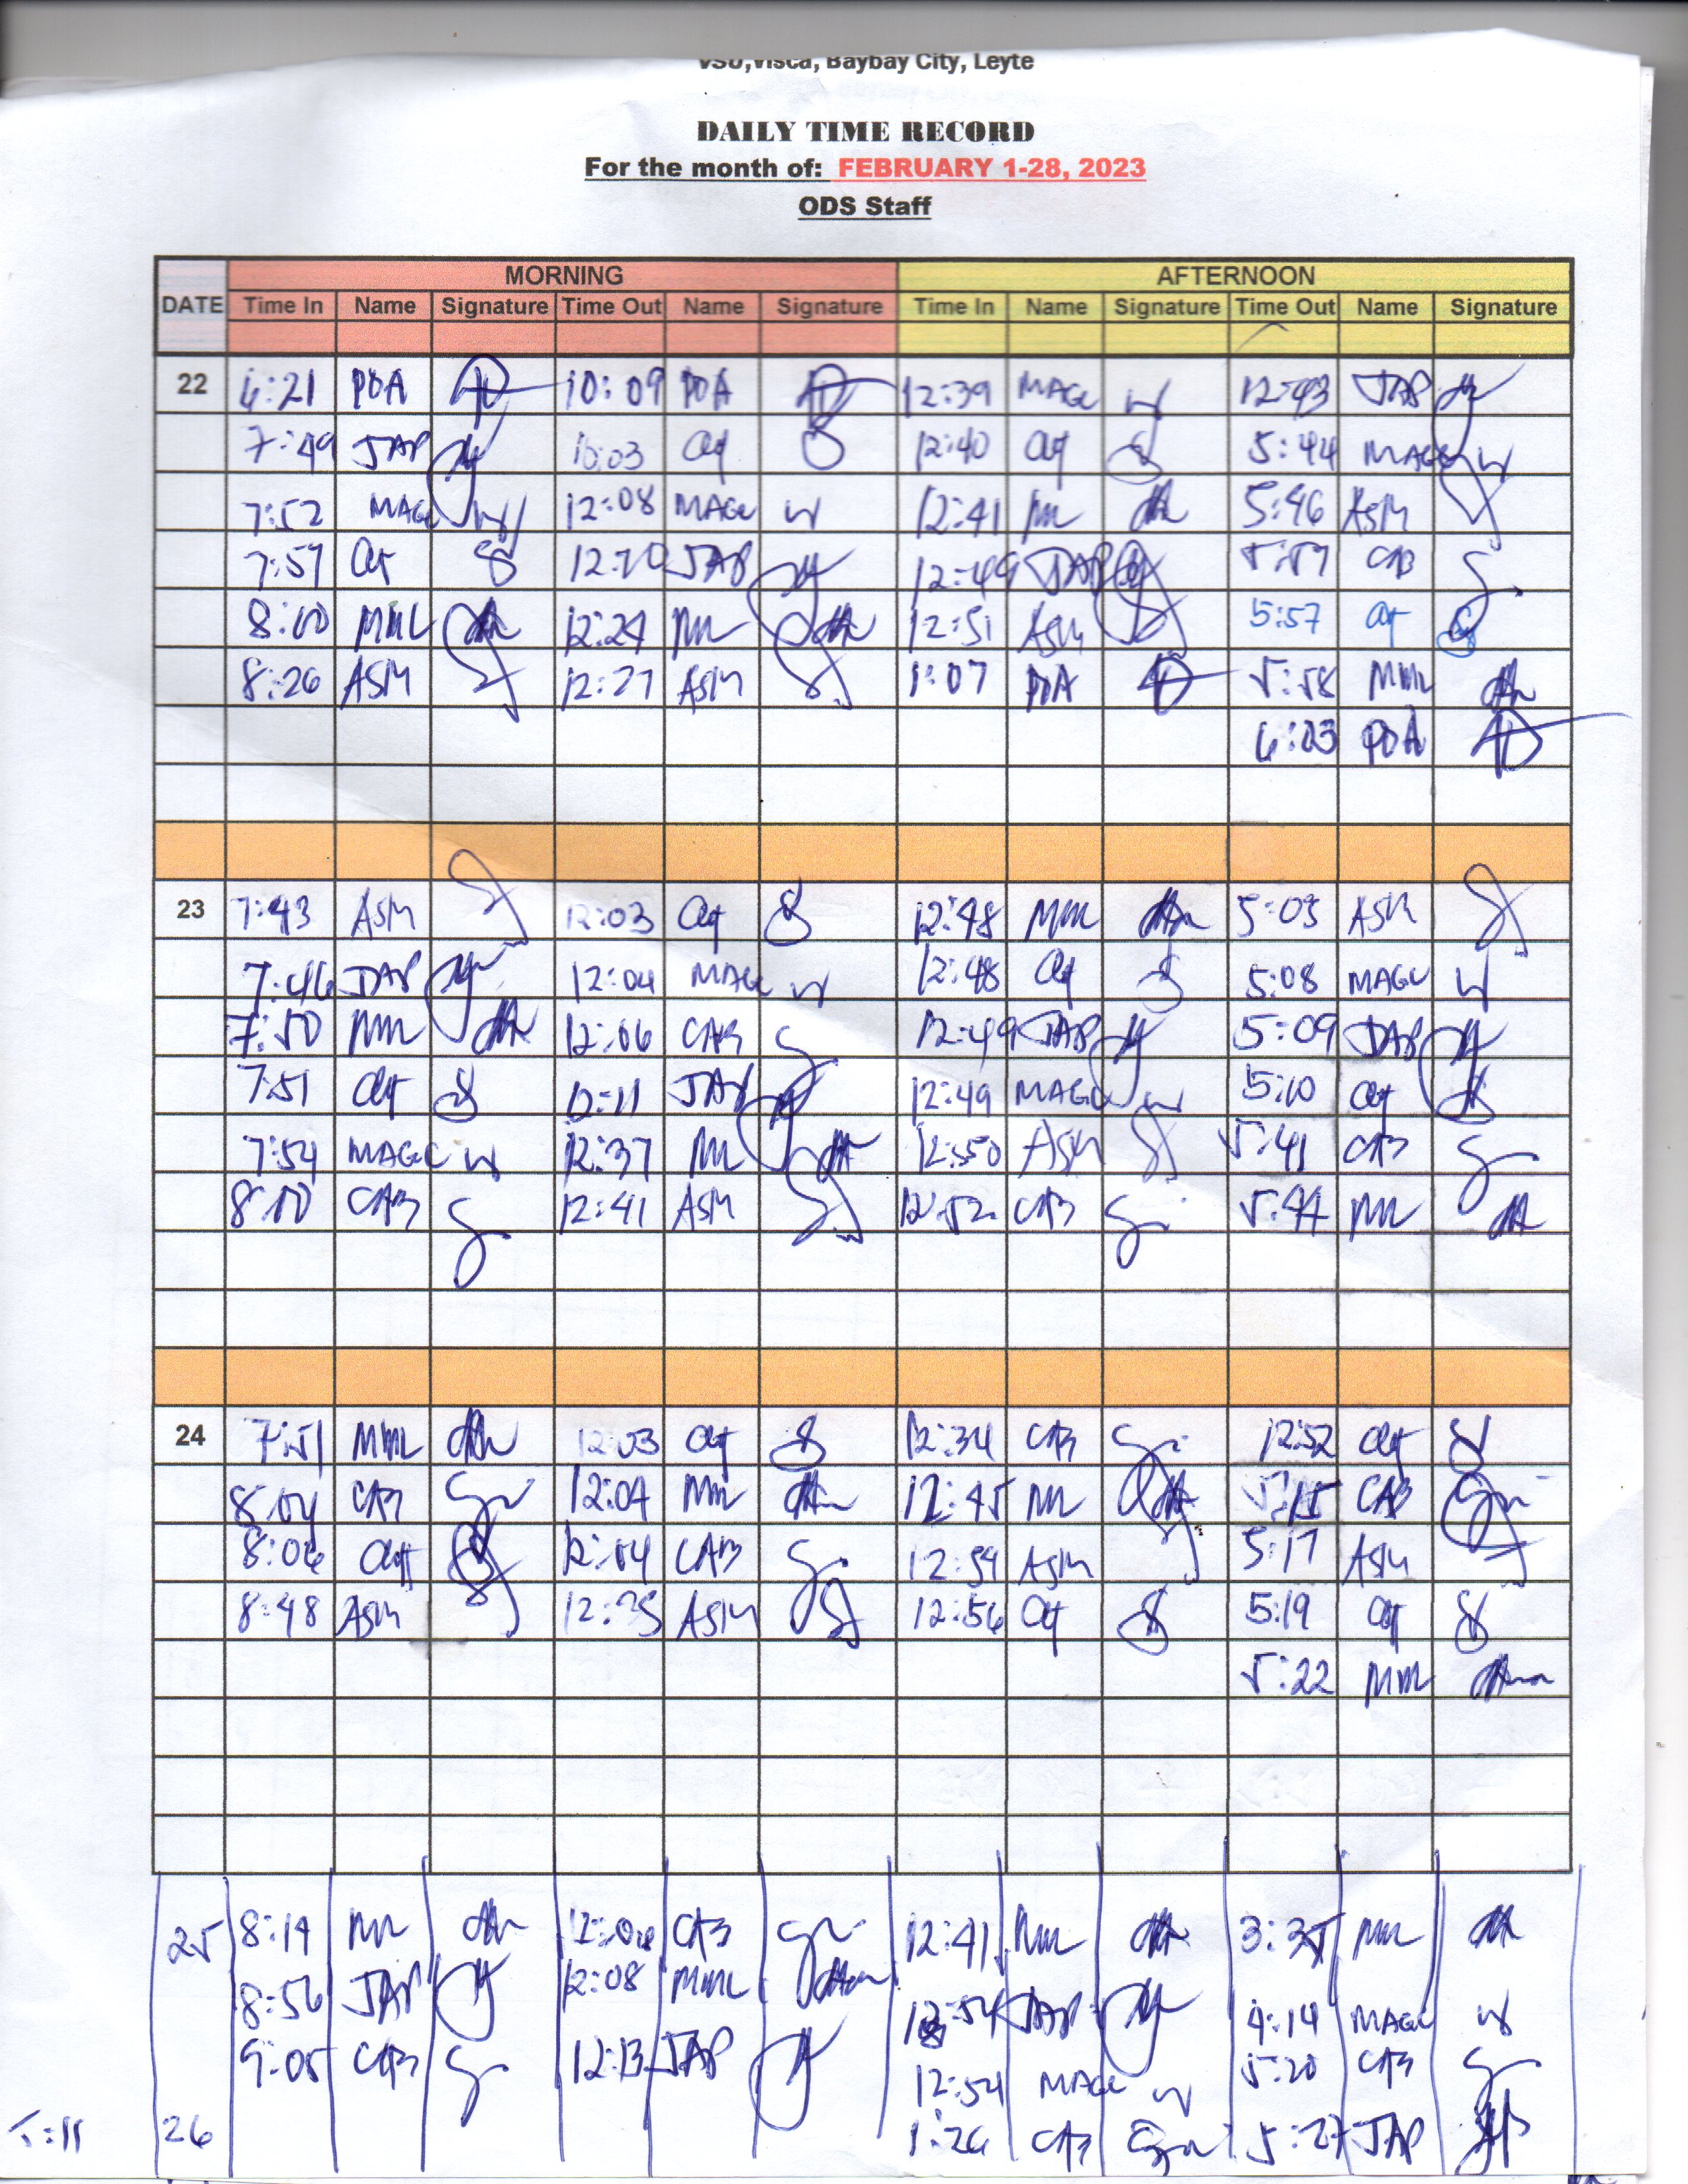 VSU,Visca, Baybay City, Leyte
DAILY TIME RECORD
For the month of: FEBRUARY 1-28, 2023
ODS Staff
MORNING AFTERNOON
DATE Time In Name Signature Time Out Name Signature Time In Name Signature Time Out Name Signature
22 6:21 POA 10:09 POA 12:39 MAGC 12:43 JAP
7:49 JAP 10:03 12:40 5:44 MAGC
7:52 MAGC 12:08 MAGC 12:41 5:46 ASM
7:57 12:20 JAP 12:49 JAP 5:57 CAB
8:00 MML 12:24 12:51 ASM 5:57
8:26 ASM 12:27 ASM 1:07 POA 5:58 MML
6:03 POA
23 7:43 ASM 12:03 12:48 MML 5:03 ASM
7:46 JAP 12:04 MAGC 12:48 5:08 MAGC
7:50 MML 12:06 CAB 12:49 JAP 5:09 JAP
7:51 12:11 JAP 12:49 MAGC 5:10
7:54 MAGC 12:37 12:50 ASM 5:41 CAB
8:00 CAB 12:41 ASM 12:52 CAB 5:44
24 7:51 MML 12:03 12:34 CAB 12:52
8:04 CAB 12:04 MML 12:45 5:15 CAB
8:06 12:04 CAB 12:54 ASM 5:17 ASM
8:48 ASM 12:35 ASM 12:56 5:19
5:22 MML
25 8:14 CAB 12:41 3:35
8:56 JAP 12:08 MML 12:54 JAP 4:14 MAGC
9:05 CAB 12:13 JAP 12:54 MAGC 5:20 CAB
5:11 26 1:26 CAB 5:27 JAP